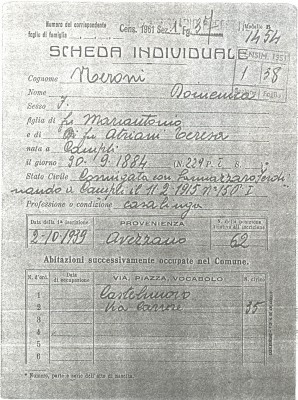 Numero del corrispondente
foglio di famiglia
Cens. 1961 Sez. 1 Fg. 3
Modello B
1454
SCHEDA INDIVIDUALE
CENSIM. 1951
1 38
Foglio
Cognome Neroni
Nome Domenica
Sesso F.
figlia di fu Mariantonio
e di fu Atriani Teresa
nata a Campli
il giorno 20.9.1884 (N. 224 P. I S. )
Stato Civile Coniugata con Iannazzaro Ferdi
nando a Campli il 11.2.1915 N° 150 I
Professione o condizione casalinga
Data della 1ª iscrizione
PROVENIENZA
2-10-1939
Avezzano
62
Abitazioni successivamente occupate nel Comune.
N. d'ord.
Data di occupazione
VIA, PIAZZA, VOCABOLO
N. civico
1 Castelnuovo
2 Via Carrore 35
3
4
5
6
* Numero, parte e serie dell'atto di nascita.